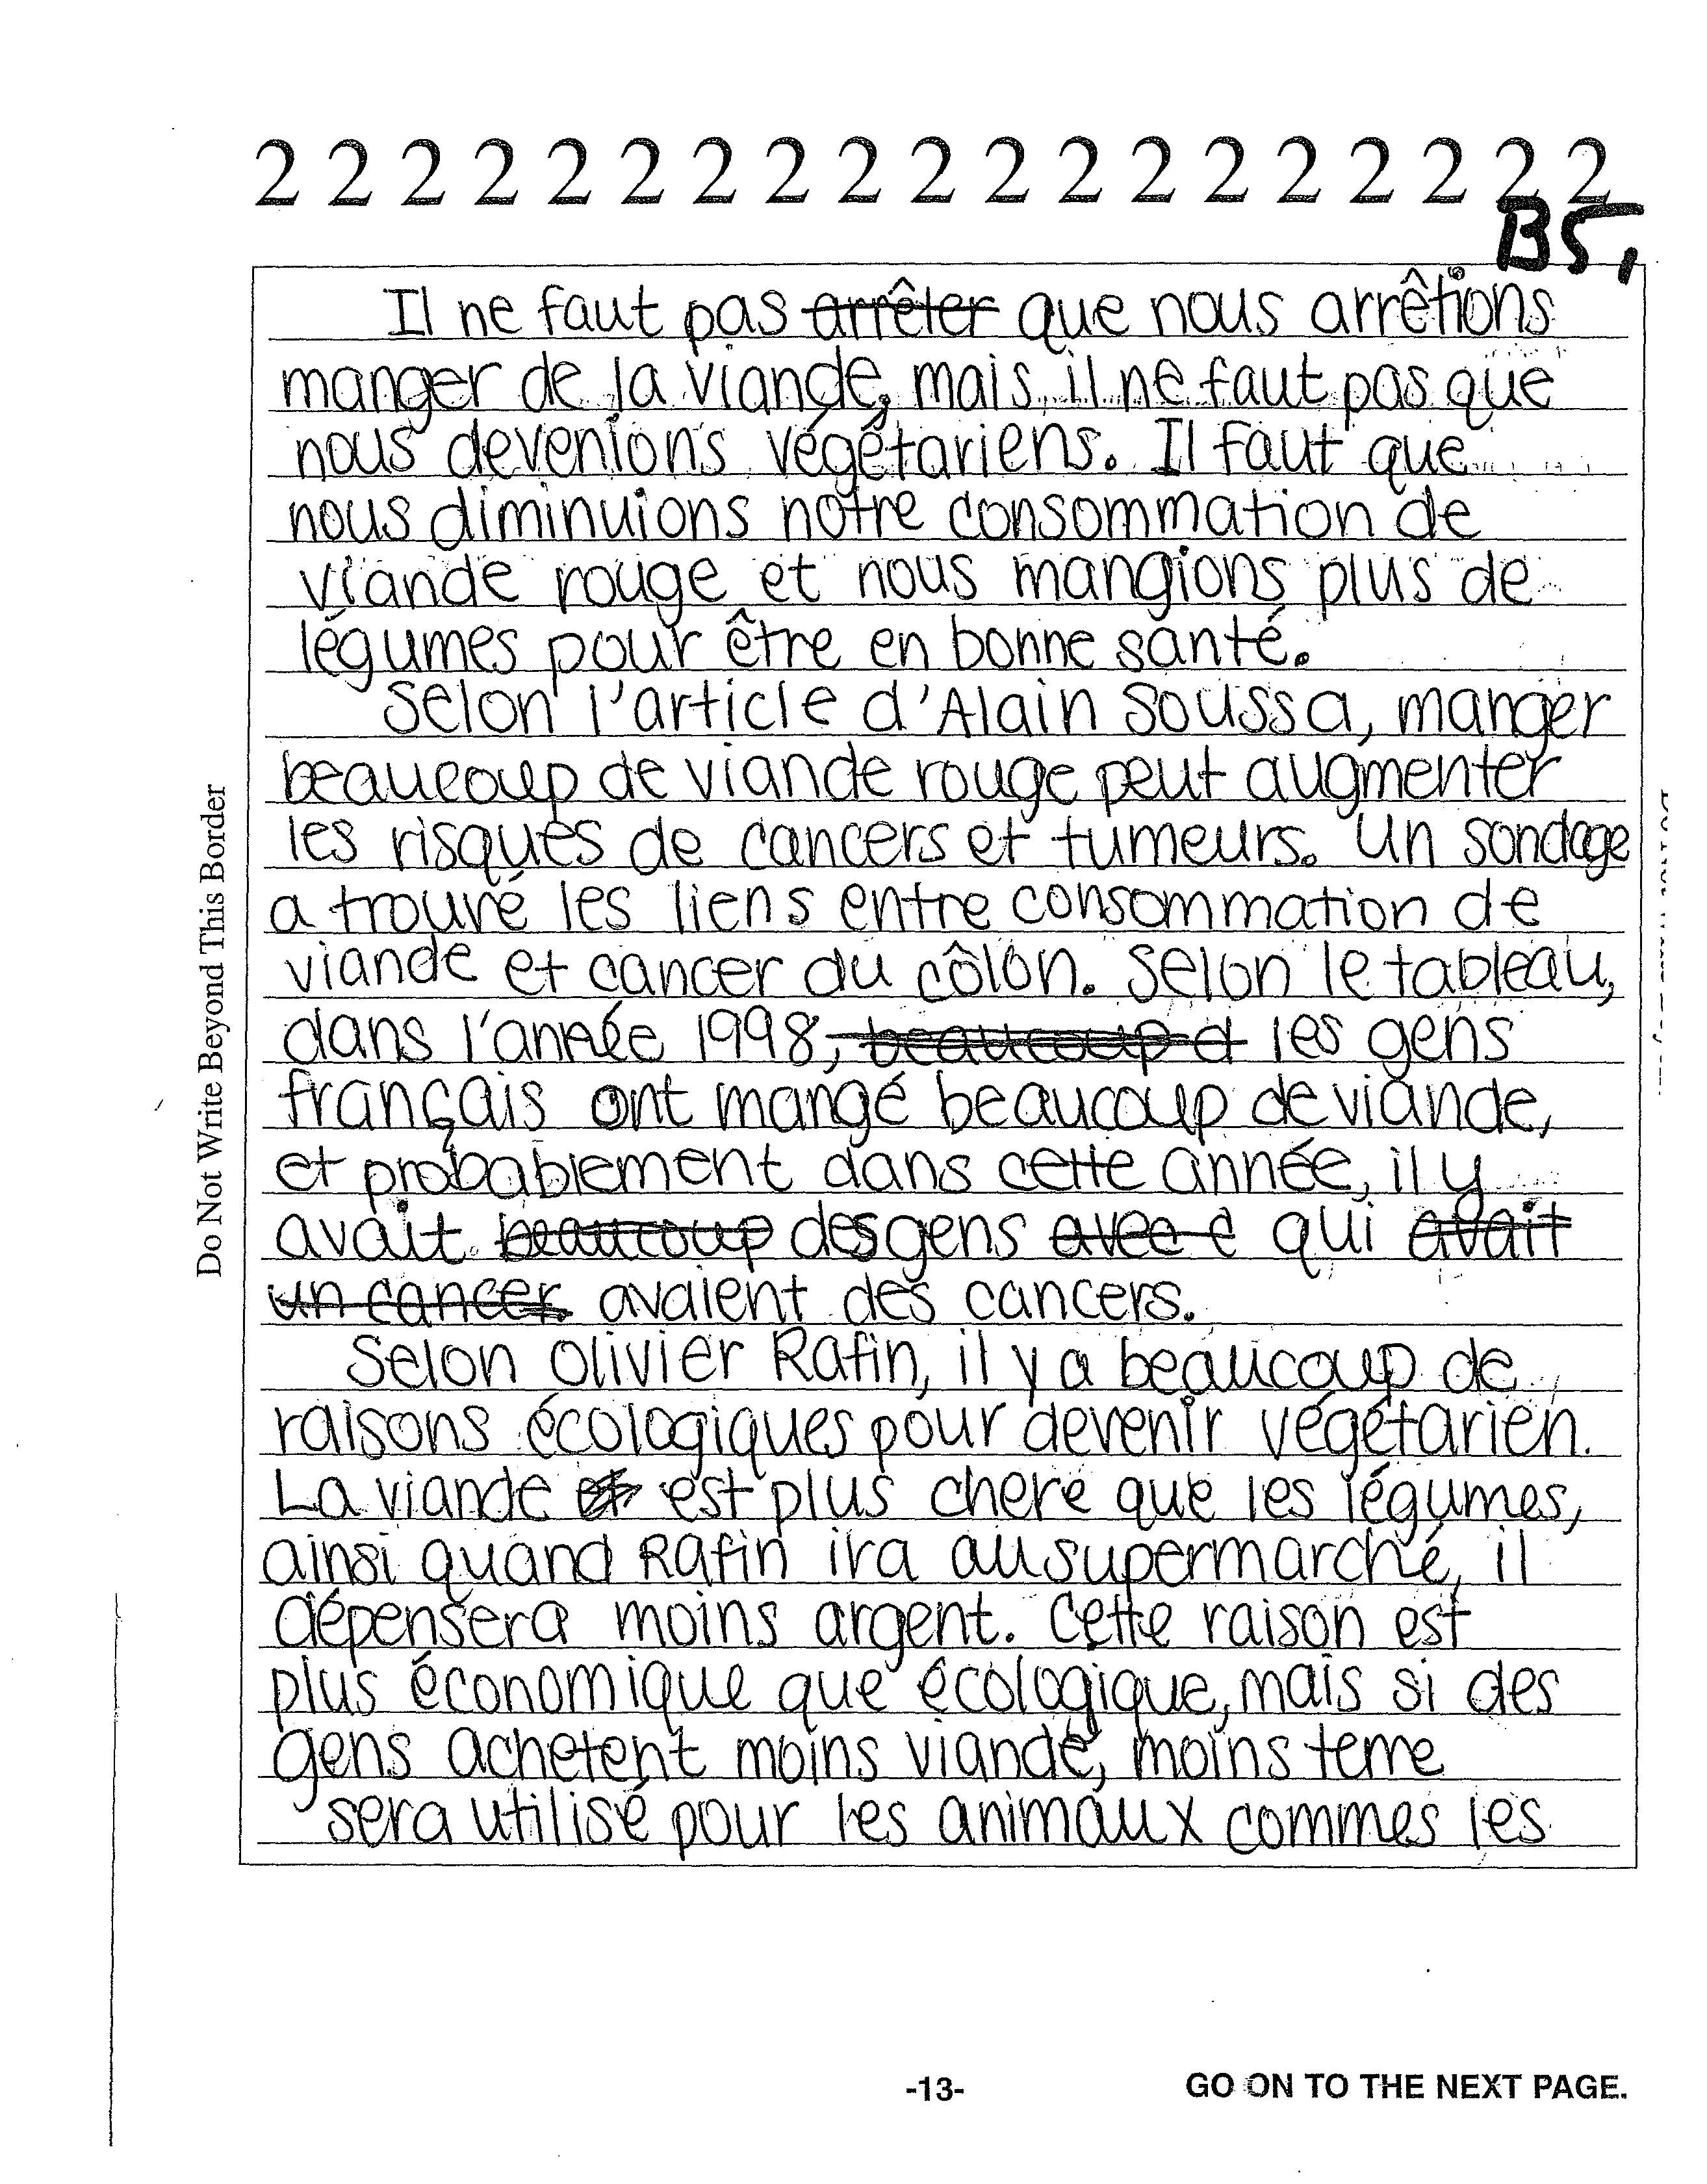 2 2 2 2 2 2 2 2 2 2 2 2 2 2 2 2 2 2 2
B5,
Il ne faut pas arrêter que nous arrêtions
manger de la viande, mais il ne faut pas que
nous devenions végétariens. Il faut que
nous diminuions notre consommation de
viande rouge et nous mangions plus de
légumes pour être en bonne santé.
Selon l'article d'Alain Soussa, manger
beaucoup de viande rouge peut augmenter
les risques de cancers et tumeurs. Un sondage
a trouvé les liens entre consommation de
viande et cancer du côlon. Selon le tableau,
dans l'année 1998, beaucoup d les gens
français ont mangé beaucoup de viande,
et probablement dans cette année, il y
avait beaucoup des gens avec c qui avait
un cancer avaient des cancers.
Selon Olivier Rafin, il y a beaucoup de
raisons écologiques pour devenir végétarien.
La viande et est plus chere que les légumes,
ainsi quand Rafin ira au supermarché, il
dépensera moins argent. Cette raison est
plus économique que écologique, mais si des
gens achetent moins viande, moins terre
sera utilisé pour les animaux commes les
Do Not Write Beyond This Border
-13-
GO ON TO THE NEXT PAGE.